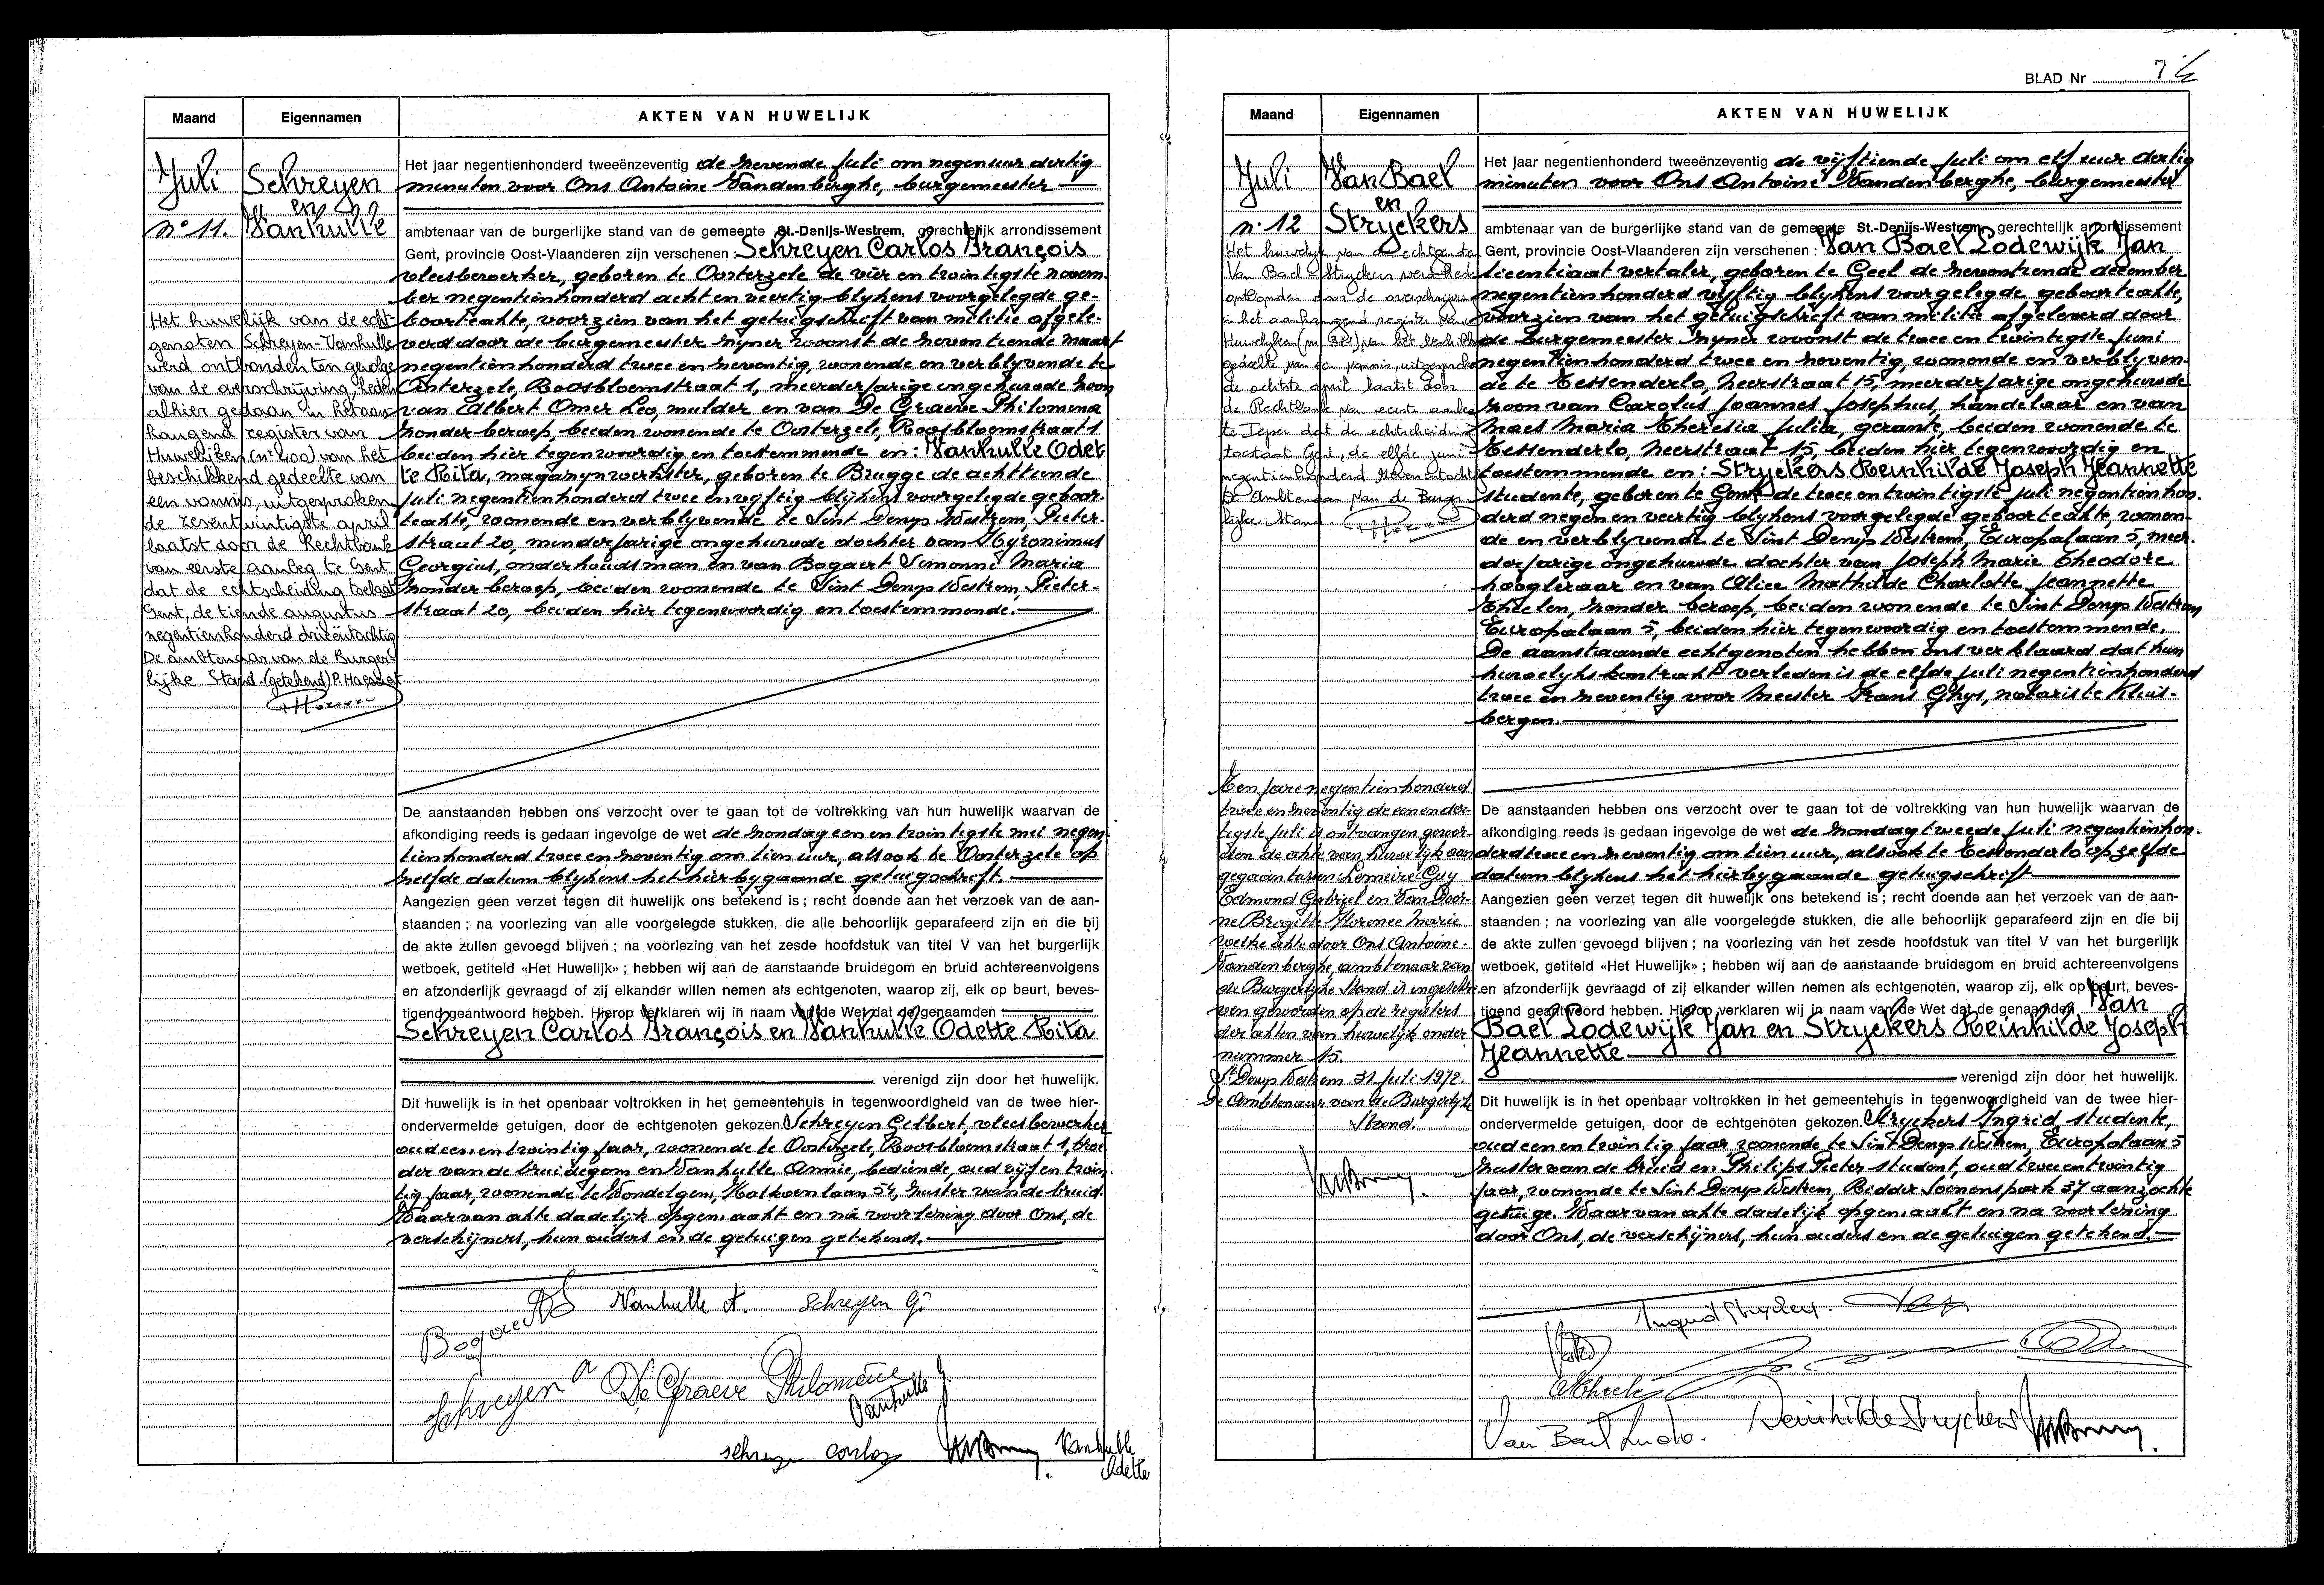 Maand Eigennamen AKTEN VAN HUWELIJK
Juli
n° 11.
Schreyen
en
Vanhulle
Het jaar negentienhonderd tweeënzeventig de zevende Juli om negen uur dertig
minuten voor Ons Antoine Vandenberghe, burgemeester
ambtenaar van de burgerlijke stand van de gemeente St.-Denijs-Westrem, gerechtelijk arrondissement
Gent, provincie Oost-Vlaanderen zijn verschenen : Schreyen Carlos François
vleesbewerker, geboren te Oosterzele de vier en twintigste novem-
ber negentienhonderd acht en veertig blykens voorgelegde ge-
boorteakte, voorzien van het getuigschrift van militie afgele-
verd door de burgemeester zyner woonst de neventiende maart
negentienhonderd twee en zeventig, wonende en verblyvende te
Oosterzele, Roosbloemstraat 1, meerderjarige ongehuwde zoon
van Albert Omer Leo, mulder en van De Graeve Philomena
zonder beroep, beiden wonende te Oosterzele, Roosbloemstraat 1
beiden hier tegenwoordig en toestemmende en : Vanhulle Odet
te Rita, magazynwerkster, geboren te Brugge de achttiende
juli negentienhonderd twee en vyftig blykens voorgelegde geboor-
teakte, wonende en verblyvende te Sint Denys Westrem, Pieter-
straat 20, minderjarige ongehuwde dochter van Hyronimus
Georgius, onderhoudsman en van Bogaert Simonne Maria
zonder beroep, beiden wonende te Sint Denys Westrem, Pieter-
straat 20, beiden hier tegenwoordig en toestemmende.
Het huwelijk van de echt-
genoten Schreyen-Vanhulle
werd ontbonden ten gevolge
van de overschrijving, heden
alhier gedaan in het aan-
hangend register van
Huwelijken (nr 400) van het
beschikkend gedeelte van
een vonnis, uitgesproken
de zesentwintigste april
laatst door de Rechtbank
van eerste aanleg te Gent
dat de echtscheiding toelaat
Gent, de tiende augustus
negentienhonderd drieëntachtig
De ambtenaar van de Burger-
lijke Stand (getekend) P.
De aanstaanden hebben ons verzocht over te gaan tot de voltrekking van hun huwelijk waarvan de
afkondiging reeds is gedaan ingevolge de wet de zondag een en twintigste mei negen-
tienhonderd twee en zeventig om tien uur, alsook te Oosterzele op
zelfde datum blykens het hierbygaande getuigschrift.
Aangezien geen verzet tegen dit huwelijk ons betekend is ; recht doende aan het verzoek van de aan-
staanden ; na voorlezing van alle voorgelegde stukken, die alle behoorlijk geparafeerd zijn en die bij
de akte zullen gevoegd blijven ; na voorlezing van het zesde hoofdstuk van titel V van het burgerlijk
wetboek, getiteld «Het Huwelijk» ; hebben wij aan de aanstaande bruidegom en bruid achtereenvolgens
en afzonderlijk gevraagd of zij elkander willen nemen als echtgenoten, waarop zij, elk op beurt, beves-
tigend geantwoord hebben. Hierop verklaren wij in naam van de Wet dat de genaamden
Schreyen Carlos François en Vanhulle Odette Rita
verenigd zijn door het huwelijk.
Dit huwelijk is in het openbaar voltrokken in het gemeentehuis in tegenwoordigheid van de twee hier-
ondervermelde getuigen, door de echtgenoten gekozen. Schreyen Gilbert, vleesbewerker
oud een en twintig jaar, wonende te Oosterzele, Roosbloemstraat 1, broe
der van de bruidegom en Vanhulle Annie, bediende, oud vijf en twin-
tig jaar, wonende te Wondelgem, Kalkoenlaan 54, zuster van de bruid.
Waarvan akte dadelijk opgemaakt en na voorlezing door Ons, de
verschijners, hun ouders en de getuigen getekend.
Vanhulle A. Schreyen Gi
Bogaert
Schreyen A De Graeve Philomène
Vanhulle J.
Schreyen Carlos Vanhulle
Odette
BLAD Nr 7
Maand Eigennamen AKTEN VAN HUWELIJK
Juli
n° 12
Van Bael
en
Stryckers
Het jaar negentienhonderd tweeënzeventig de vijftiende Juli om elf uur dertig
minuten voor Ons Antoine Vandenberghe, burgemeester
ambtenaar van de burgerlijke stand van de gemeente St.-Denijs-Westrem, gerechtelijk arrondissement
Gent, provincie Oost-Vlaanderen zijn verschenen : Van Bael Lodewijk Jan
licentiaat vertaler, geboren te Geel de zeventiende december
negentienhonderd vyftig blykens voorgelegde geboorteakte,
voorzien van het getuigschrift van militie afgeleverd door
de burgemeester zyner woonst de twee en twintigste juni
negentienhonderd twee en zeventig, wonende en verblyven-
de te Tessenderlo, Neerstraat 15, meerderjarige ongehuwde
zoon van Carolus Joannes Josephus, handelaar en van
Maes Maria Theresia Julia, gerante, beiden wonende te
Tessenderlo, Neerstraat 15, beiden hier tegenwoordig en
toestemmende en : Stryckers Reinhilde Joseph Jeannette
studente, geboren te Genk de twee en twintigste juli negentienhon-
derd negen en veertig blykens voorgelegde geboorteakte, wonen-
de en verblyvende te Sint Denys Westrem, Europalaan 5, meer-
derjarige ongehuwde dochter van Joseph Marie Theodore
hoogleraar en van Alice Mathilde Charlotte Jeannette
Theelen, zonder beroep, beiden wonende te Sint Denys Westrem
Europalaan 5, beiden hier tegenwoordig en toestemmende.
De aanstaande echtgenoten hebben ons verklaard dat hun
huwelykskontrakt verleden is de elfde juli negentienhonderd
twee en zeventig voor Meester Frans Ghys, notaris te Kluis-
bergen.
Het huwelijk van de echtgenoten
Van Bael - Stryckers werd heden
ontbonden door de overschrijving
in het aanhangend register van
Huwelijken (nr 381) van het beschikkend
gedeelte van een vonnis, uitgesproken
de achtste april laatst door
de Rechtbank van eerste aanleg
te Ieper dat de echtscheiding
toestaat Gent, de elfde juni
negentienhonderd zevenentachtig
De Ambtenaar van de Burger-
lijke Stand
Ten jare negentienhonderd
twee en zeventig de een en der-
tigste Juli is ontvangen gewor-
den de akte van huwelijk aan
gegaan tussen Lemeire Guy
Edmond Gabriel en Van Door-
ne Brigitte Florence Marie
welke akte door Ons Antoine
Vandenberghe, ambtenaar van
de Burgerlyke Stand is ingeschre-
ven geworden op de registers
der akten van huwelijk onder
nummer 15.
St. Denys Westrem 31 Juli 1972.
De Ambtenaar van de Burgerlyke
Stand.
De aanstaanden hebben ons verzocht over te gaan tot de voltrekking van hun huwelijk waarvan de
afkondiging reeds is gedaan ingevolge de wet de zondag tweede Juli negentienhon-
derd twee en zeventig om tien uur, alsook te Tessenderlo op zelfde
datum blykens het hierbygaande getuigschrift
Aangezien geen verzet tegen dit huwelijk ons betekend is ; recht doende aan het verzoek van de aan-
staanden ; na voorlezing van alle voorgelegde stukken, die alle behoorlijk geparafeerd zijn en die bij
de akte zullen gevoegd blijven ; na voorlezing van het zesde hoofdstuk van titel V van het burgerlijk
wetboek, getiteld «Het Huwelijk» ; hebben wij aan de aanstaande bruidegom en bruid achtereenvolgens
en afzonderlijk gevraagd of zij elkander willen nemen als echtgenoten, waarop zij, elk op beurt, beves-
tigend geantwoord hebben. Hierop verklaren wij in naam van de Wet dat de genaamden Van
Bael Lodewijk Jan en Stryckers Reinhilde Joseph
Jeannette
verenigd zijn door het huwelijk.
Dit huwelijk is in het openbaar voltrokken in het gemeentehuis in tegenwoordigheid van de twee hier-
ondervermelde getuigen, door de echtgenoten gekozen. Stryckers Ingrid studente,
oud een en twintig jaar wonende te Sint Denys Westrem, Europalaan 5
zuster van de bruid en Philips Pieter student, oud twee en twintig
jaar, wonende te Sint Denys Westrem, Ridder Soenenspark 37 aanzochte
getuige. Waarvan akte dadelijk opgemaakt en na voorlezing
door Ons, de verschijners, hun ouders en de getuigen getekend.
Ingrid Stryckers.
Van Bael Ludo. Reinhilde Stryckers